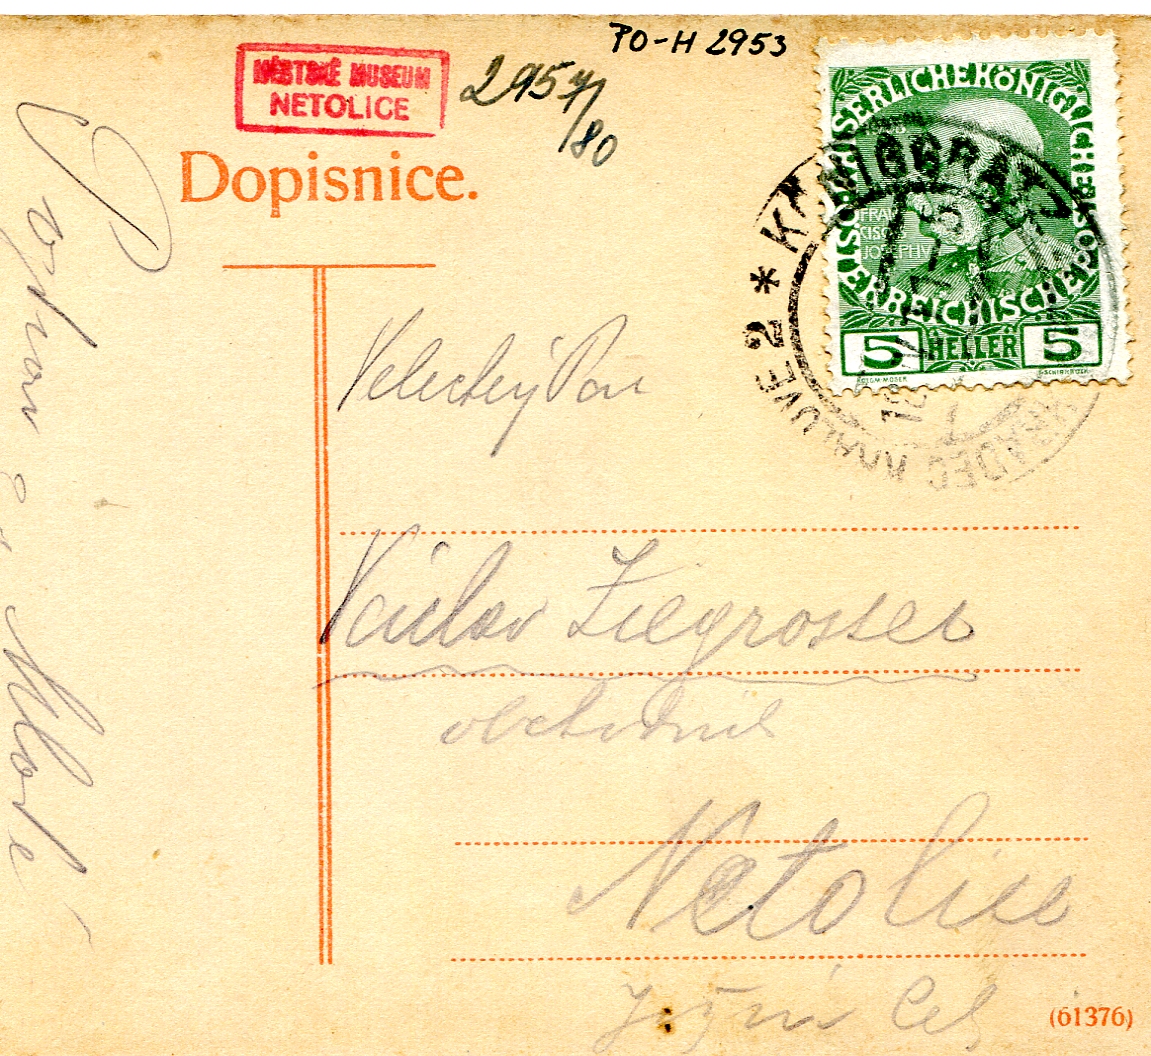 PO-H 2953
MĚSTSKÉ MUSEUM
NETOLICE
2957/80
Dopisnice.
KAISERLICHE KÖNIGLICHE ÖSTERREICHISCHE POST
FRAN
CISC
JOSEPH I
5 HELLER 5
KOLOM. MOSER
F. SCHIRNBÖCK
KÖNIGGRÄTZ
* HRADEC KRÁLOVÉ 2 *
Velectěný Pan
Václav Ziegrosser
obchodník
Netolice
(61376)